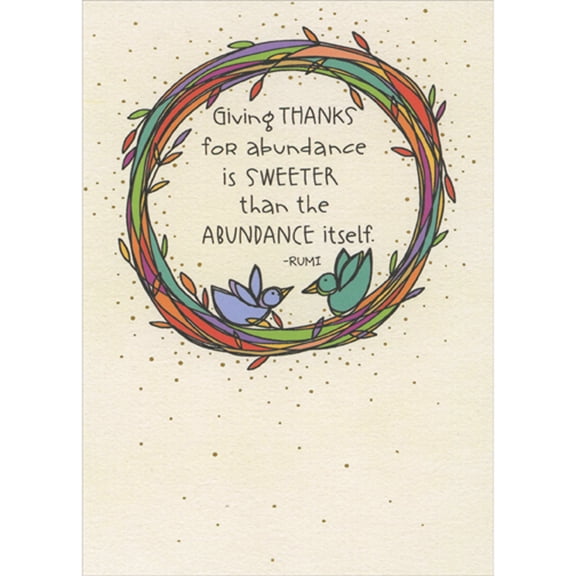 Giving THANKS
for abundance
is SWEETER
than the
ABUNDANCE itself.
-RUMI